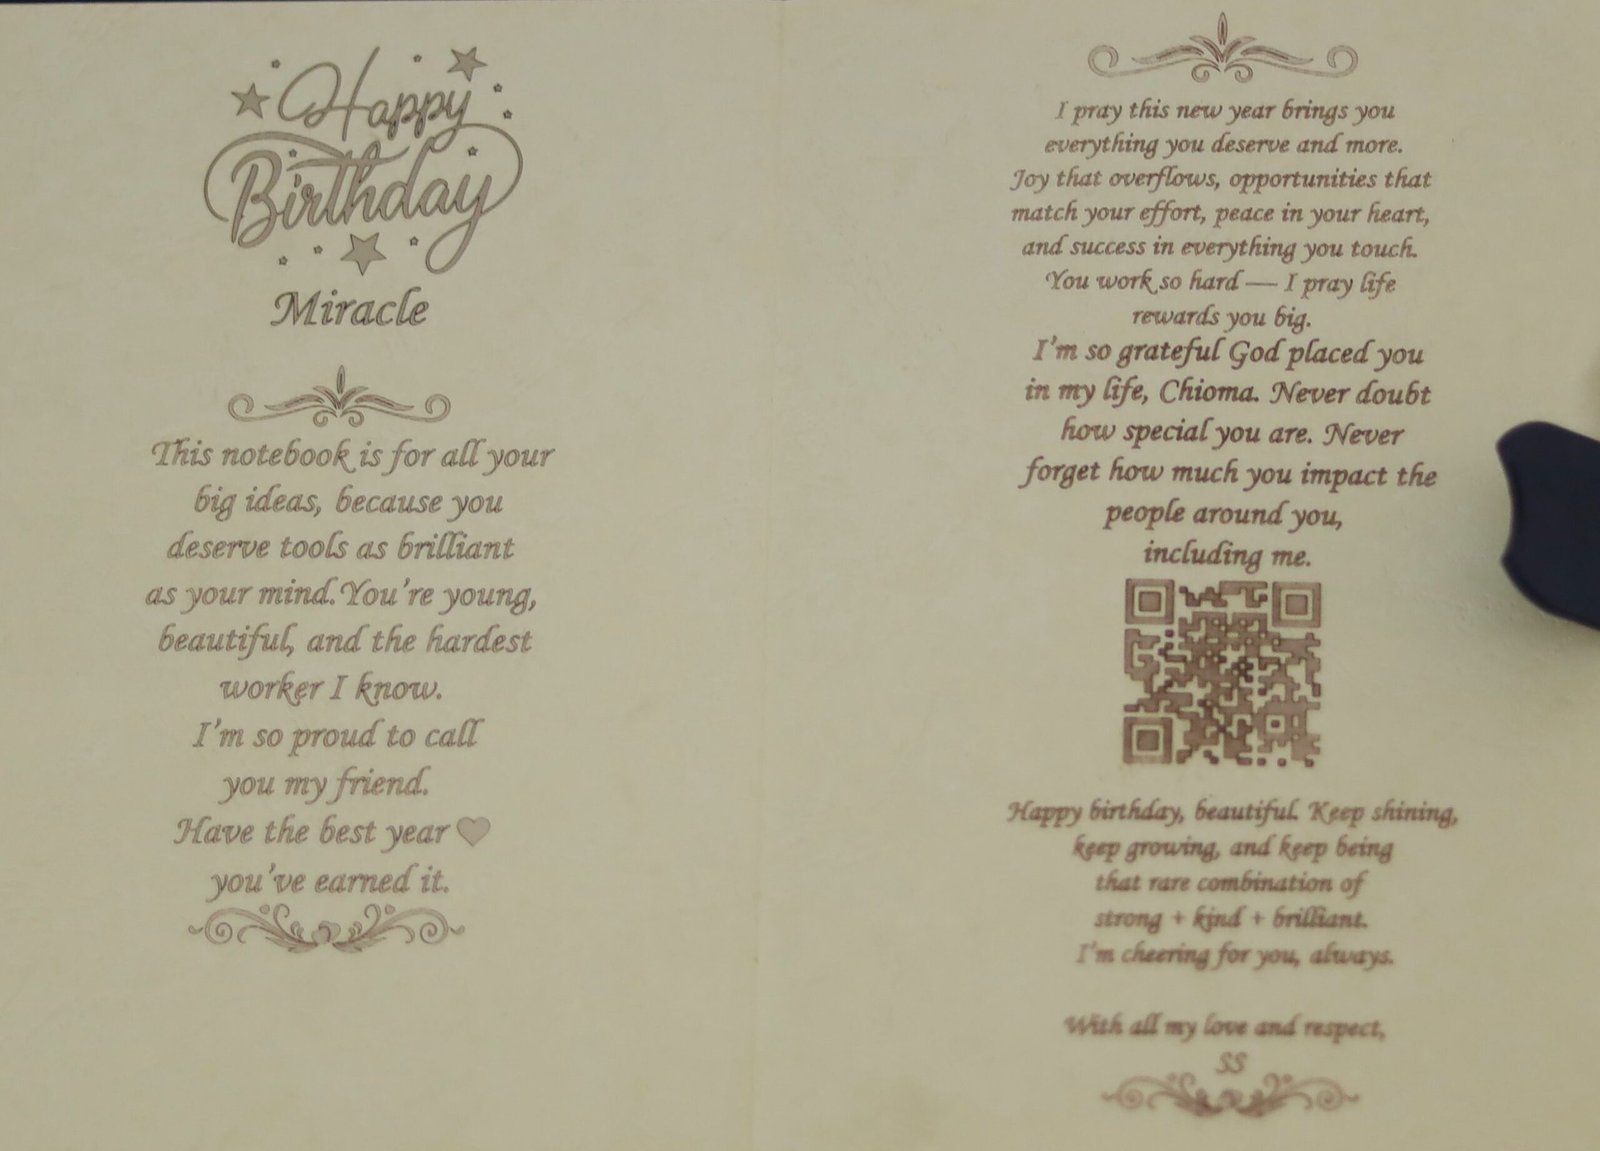 Happy
Birthday
Miracle
This notebook is for all your
big ideas, because you
deserve tools as brilliant
as your mind. You're young,
beautiful, and the hardest
worker I know.
I'm so proud to call
you my friend.
Have the best year ♥
you've earned it.
I pray this new year brings you
everything you deserve and more.
Joy that overflows, opportunities that
match your effort, peace in your heart,
and success in everything you touch.
You work so hard — I pray life
rewards you big.
I'm so grateful God placed you
in my life, Chioma. Never doubt
how special you are. Never
forget how much you impact the
people around you,
including me.
Happy birthday, beautiful. Keep shining,
keep growing, and keep being
that rare combination of
strong + kind + brilliant.
I'm cheering for you, always.
With all my love and respect,
SS